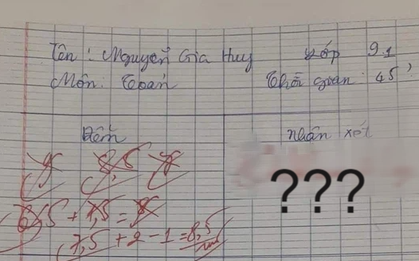 Tên: Nguyễn Gia Huy Lớp 9.1
Môn: Toán Thời gian: 45'
Điểm nhận xét
9 8,5 7
6,5 + 1,5 = 8
7,5 + 2 - 1 = 8,5
???